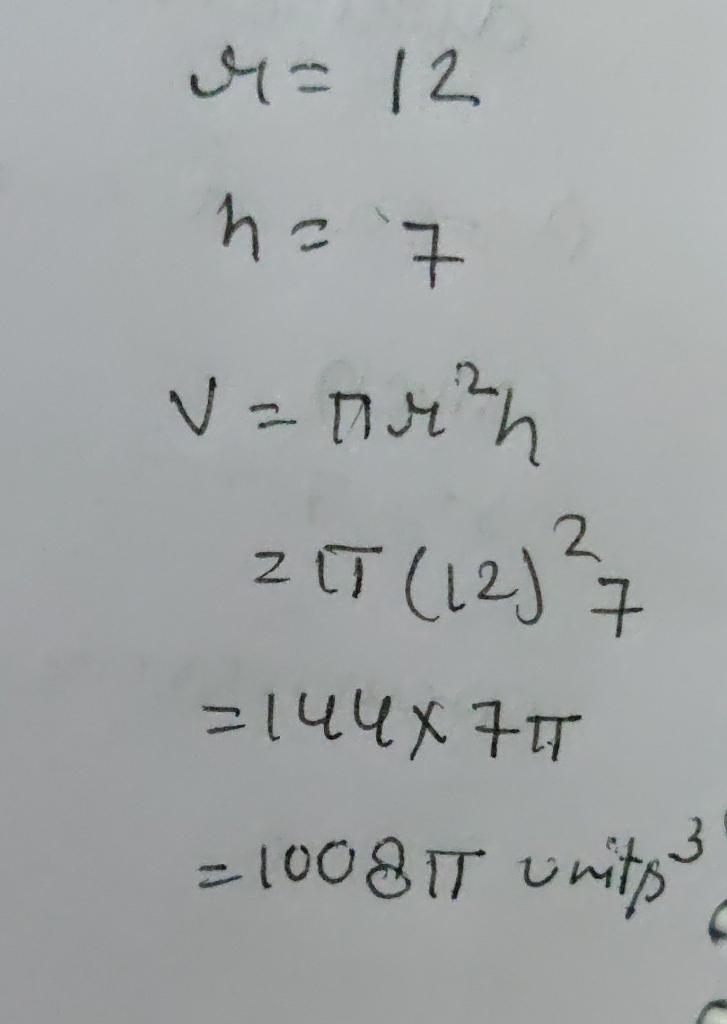 r = 12
h = 7
V = πr²h
= π(12)²7
= 144 × 7π
= 1008π units³